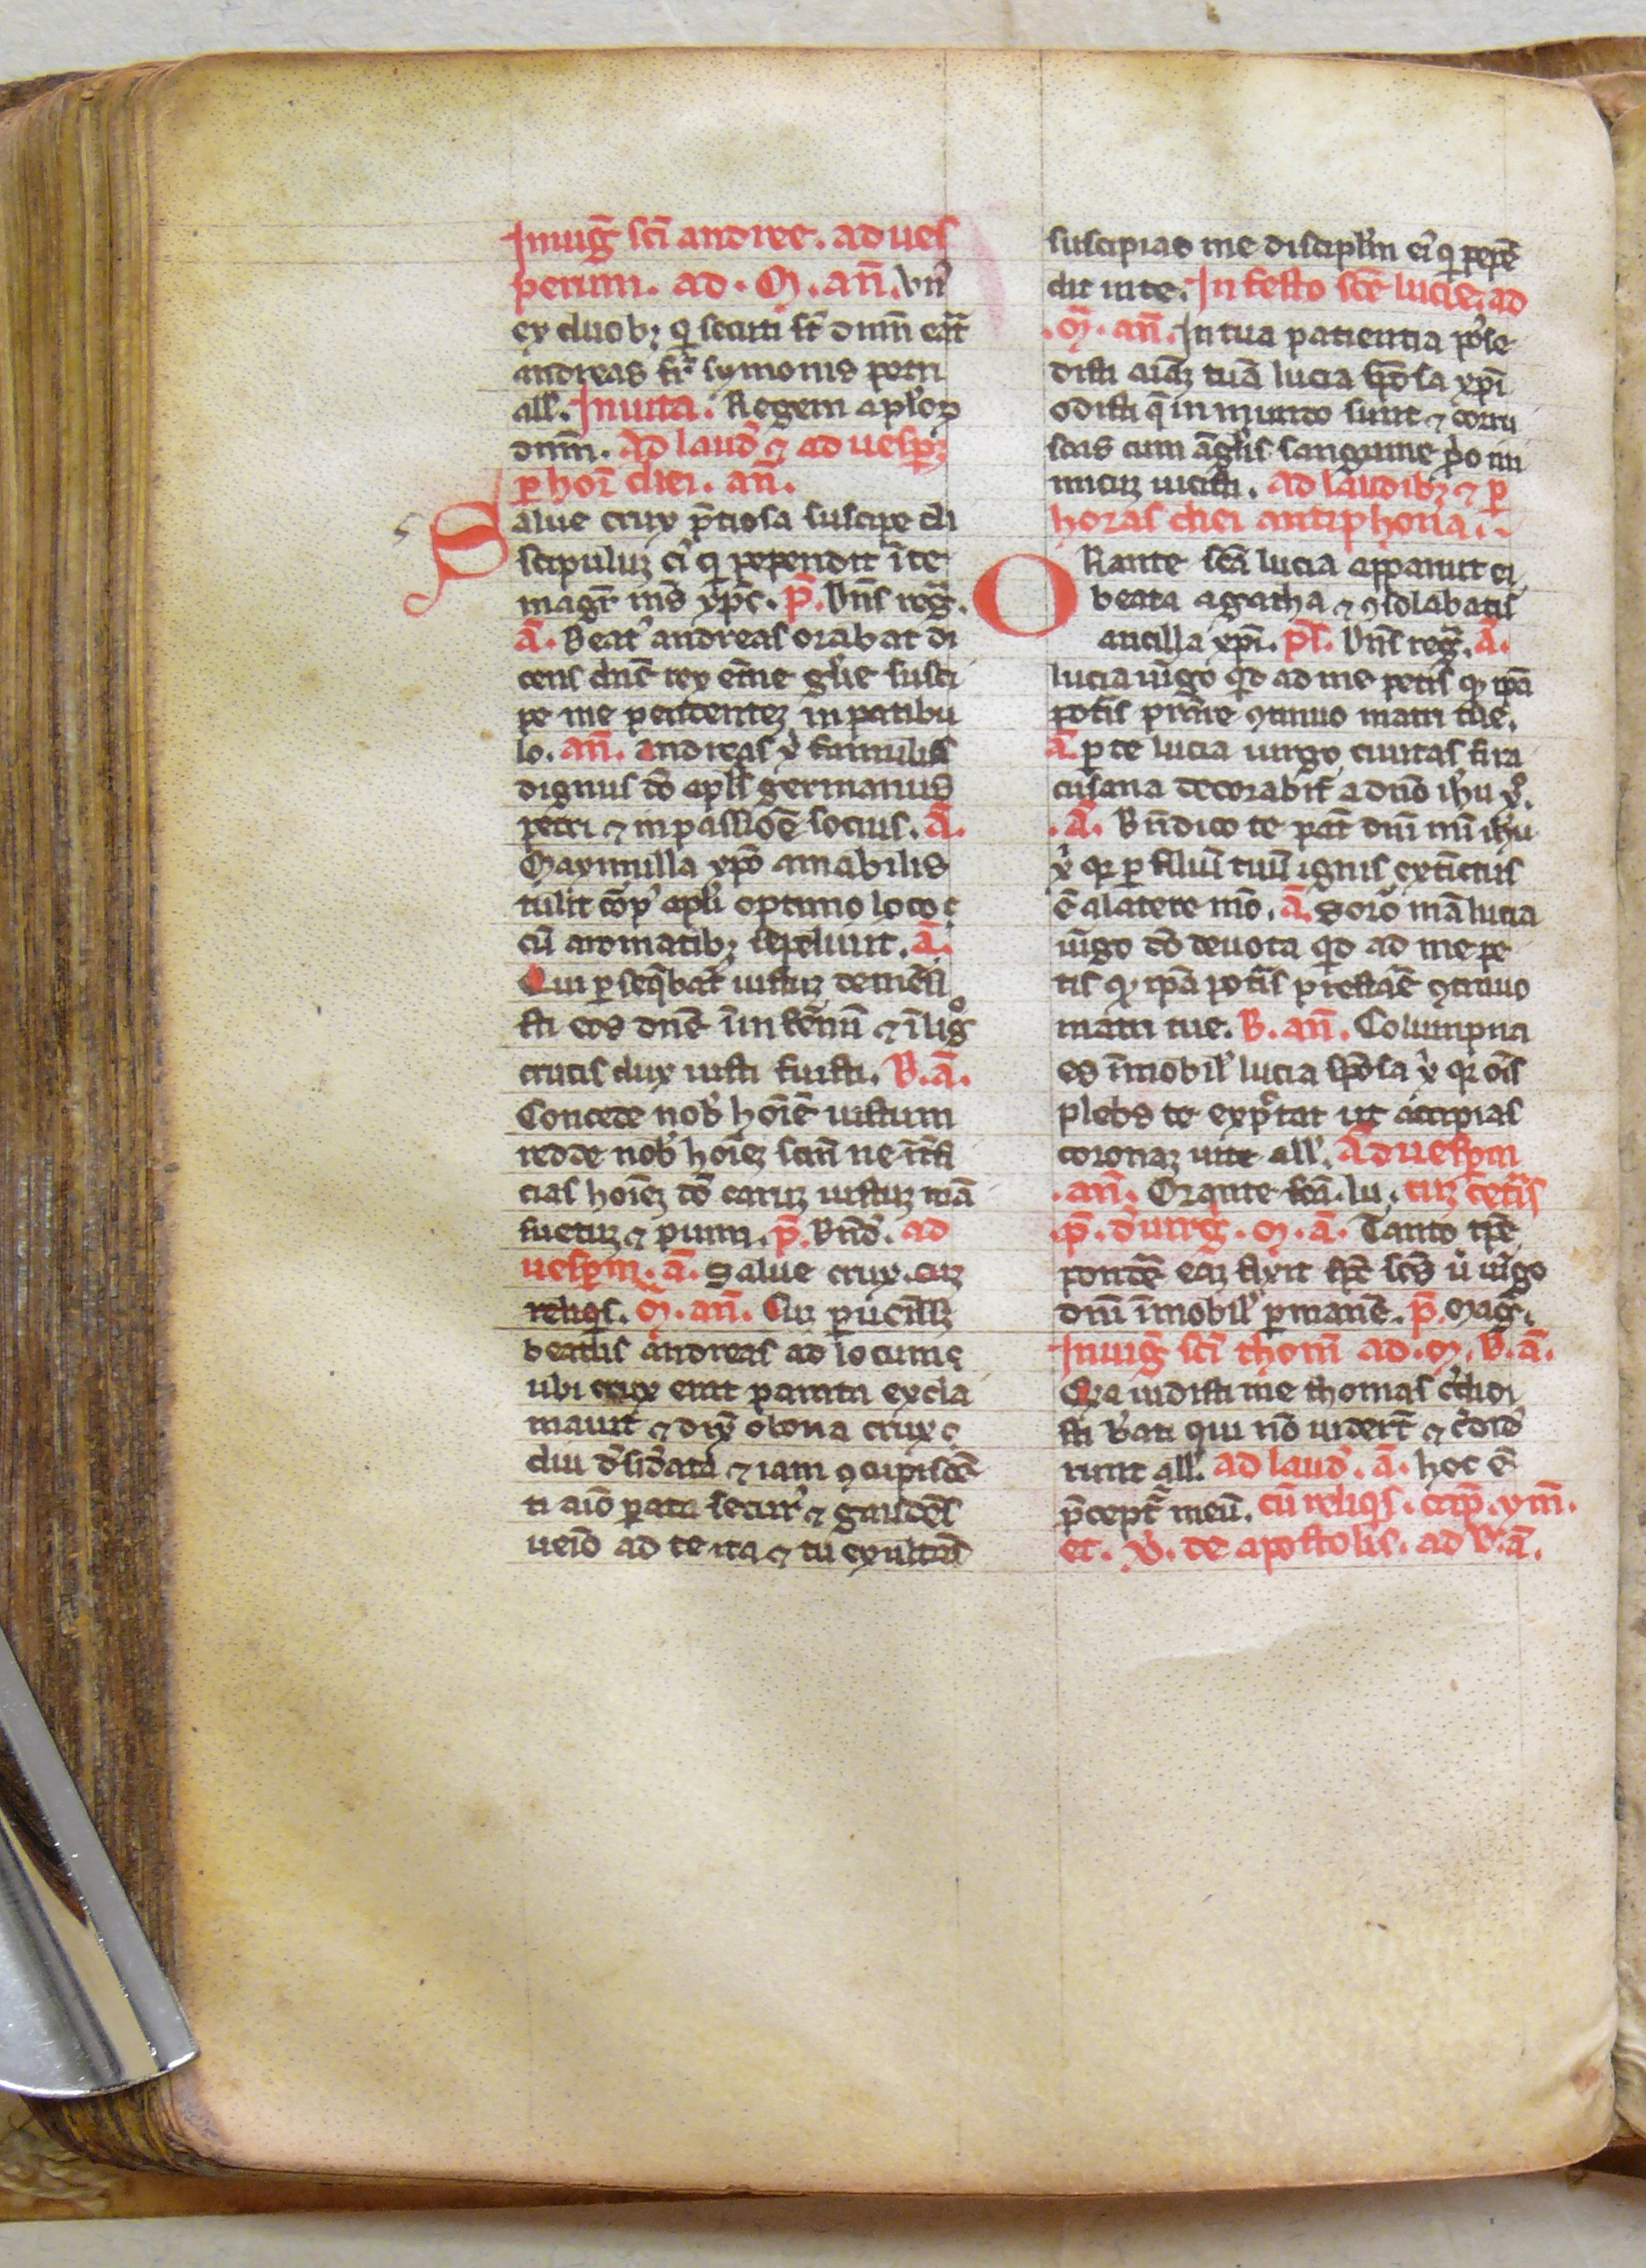 In uig̃ sc̃i andree. ad ues
perum. ad. M. an̄. Vn'
ex duob; q̇ secuti st̄ dn̄m erat̄
andreas fr̄ symonis petri
all'. Inuita. Regem apl'oꝝ
dn̄m. Ad laud' ⁊ ad uesp̲ꝫ
p̲ hor̄ diei. an̄.
Salue crux p̄tiosa suscipe di
scipuluꝫ ei' q̇ pependit ī te
magr̄ m̄s xp̄c. p̄. Dn̄s reg̃.
ā. Beat' andreas orabat di
cens dn̄e rex et̄ne gl'ie susci
pe me pendenteꝫ in patibu
lo. an̄. andreas x̓ famulus
dignus dō apl's germanus
petri ⁊ in passiōe socius. ā.
Maximilla xp̄o amabilis
tulit corp' apl'i optimo loco
cū aromatib; sepeliuit. ā.
Qui p̲seq̄bat̄ iustuꝫ demersi
sti eos dn̄e ī infernū ⁊ ī lig°
crucis dux iusti fuisti. B. ā.
Concede nob' hoīēꝫ iustum
redde nob' hoīeꝫ scm̄ ne īt̄fi
cias hoīeꝫ dō caruꝫ iustuꝫ mā
suetuꝫ ⁊ pium. p̄. Bn̄d'. ad
uesp̲m. ā. Salue crux. cuꝫ
reliq̇s. M. an̄. Cuꝫ p̲ueniss̄ꝫ
beatus andreas ad locum
ubi crux erat parata excla
mauit ⁊ dix̄ o bona crux
diu d'sid'ata ⁊ iam ꝯcupiscē
ti aīo p̲ata secur' ⁊ gaudēs
uenio ad te ita ⁊ tu exultās
suscipias me discipl'm ei' q̇ pepē
dit in te. In festo sc̄e lucie. ad
M. an̄. In tua patientia posse
disti aīaꝫ tuā lucia spōsa xp̄i
odisti q̄ in mundo sunt ⁊ corru
scas cum āgl'is sanguine p̱o ini
micuꝫ uicisti. Ad laudibꝫ ⁊ p̲
horas diei antiphona.
ORante sc̄a lucia apparuit ei
beata agatha ⁊ ꝯsolabat̄
ancilla xp̄i. ps̄. Dn̄s reg̃. ā.
lucia uīgo qd ad me petis qꝫ ip̄a
pot̄is p̄stare ꝯtinuo matri tue.
ā. p̲ te lucia uirgo ciuitas sira
cusana decorabit̄ a dn̄o ih̄u x̓.
ā. Bn̄dico te pat̄ dn̄i m̄i ih̄u
x̓ qꝛ p̲ filiū tuū ignis extīctus
ē a latere meo. ā. Soror mā lucia
uīgo dō deuota qd ad me pe
tis qꝫ ip̄a pot̄is prestare ꝯtinuo
matri tue. B. an̄. Columpna
es īmobil' lucia spōsa x̓ qꝛ oīs
plebs te exp̄tat ut accipias
coronaꝫ uite all'. Ad uesp̲m
an̄. Orante sc̄a lu. cuꝫ cet̄is
p̄. d' uirg̃. M. ā. Tanto
pondē eaꝫ fixit sp̄c sc̄s ū uīgo
dn̄i īmobil' p̲manēt. p̄. Mag̃.
In uig̃ sc̄i thom̄ ad. M. B. ā.
Quia uidisti me thomas c̓didi
sti b'ati qui nō uidert̄ ⁊ c̓did'
runt all'. ad laud'. ā. hoc ē
p̄cept̄ meū. cū reliqs. cap̄. ym̄.
et. v̓. de apostolis. ad B. ā.